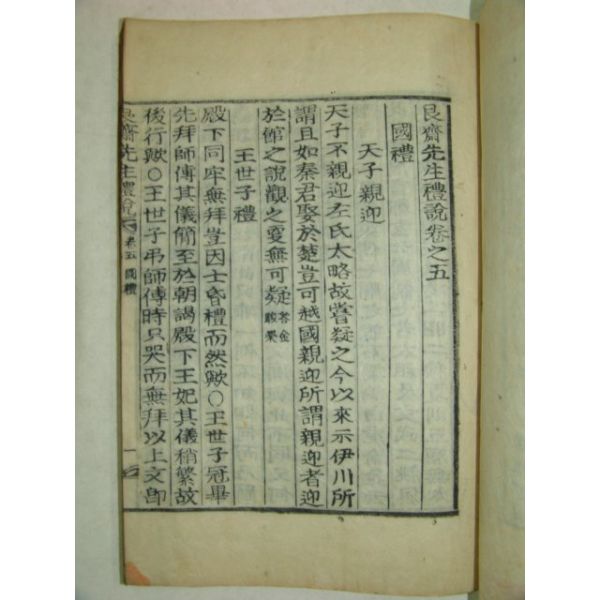 艮齋先生禮說卷之五
國禮
天子親迎
天子不親迎左氏太略故嘗疑之今以來示伊川所
謂且如秦君娶於楚豈可越國親迎所謂親迎者迎
於館之說觀之更無可疑答金
王世子禮
殿下同牢無拜豈因士昏禮而然歟○王世子冠畢
先拜師傅其儀簡至於朝謁殿下王妃其儀稍繁故
後行歟○王世子弔師傅時只哭而無拜以上文卽
艮齋先生禮說 卷五 國禮 一